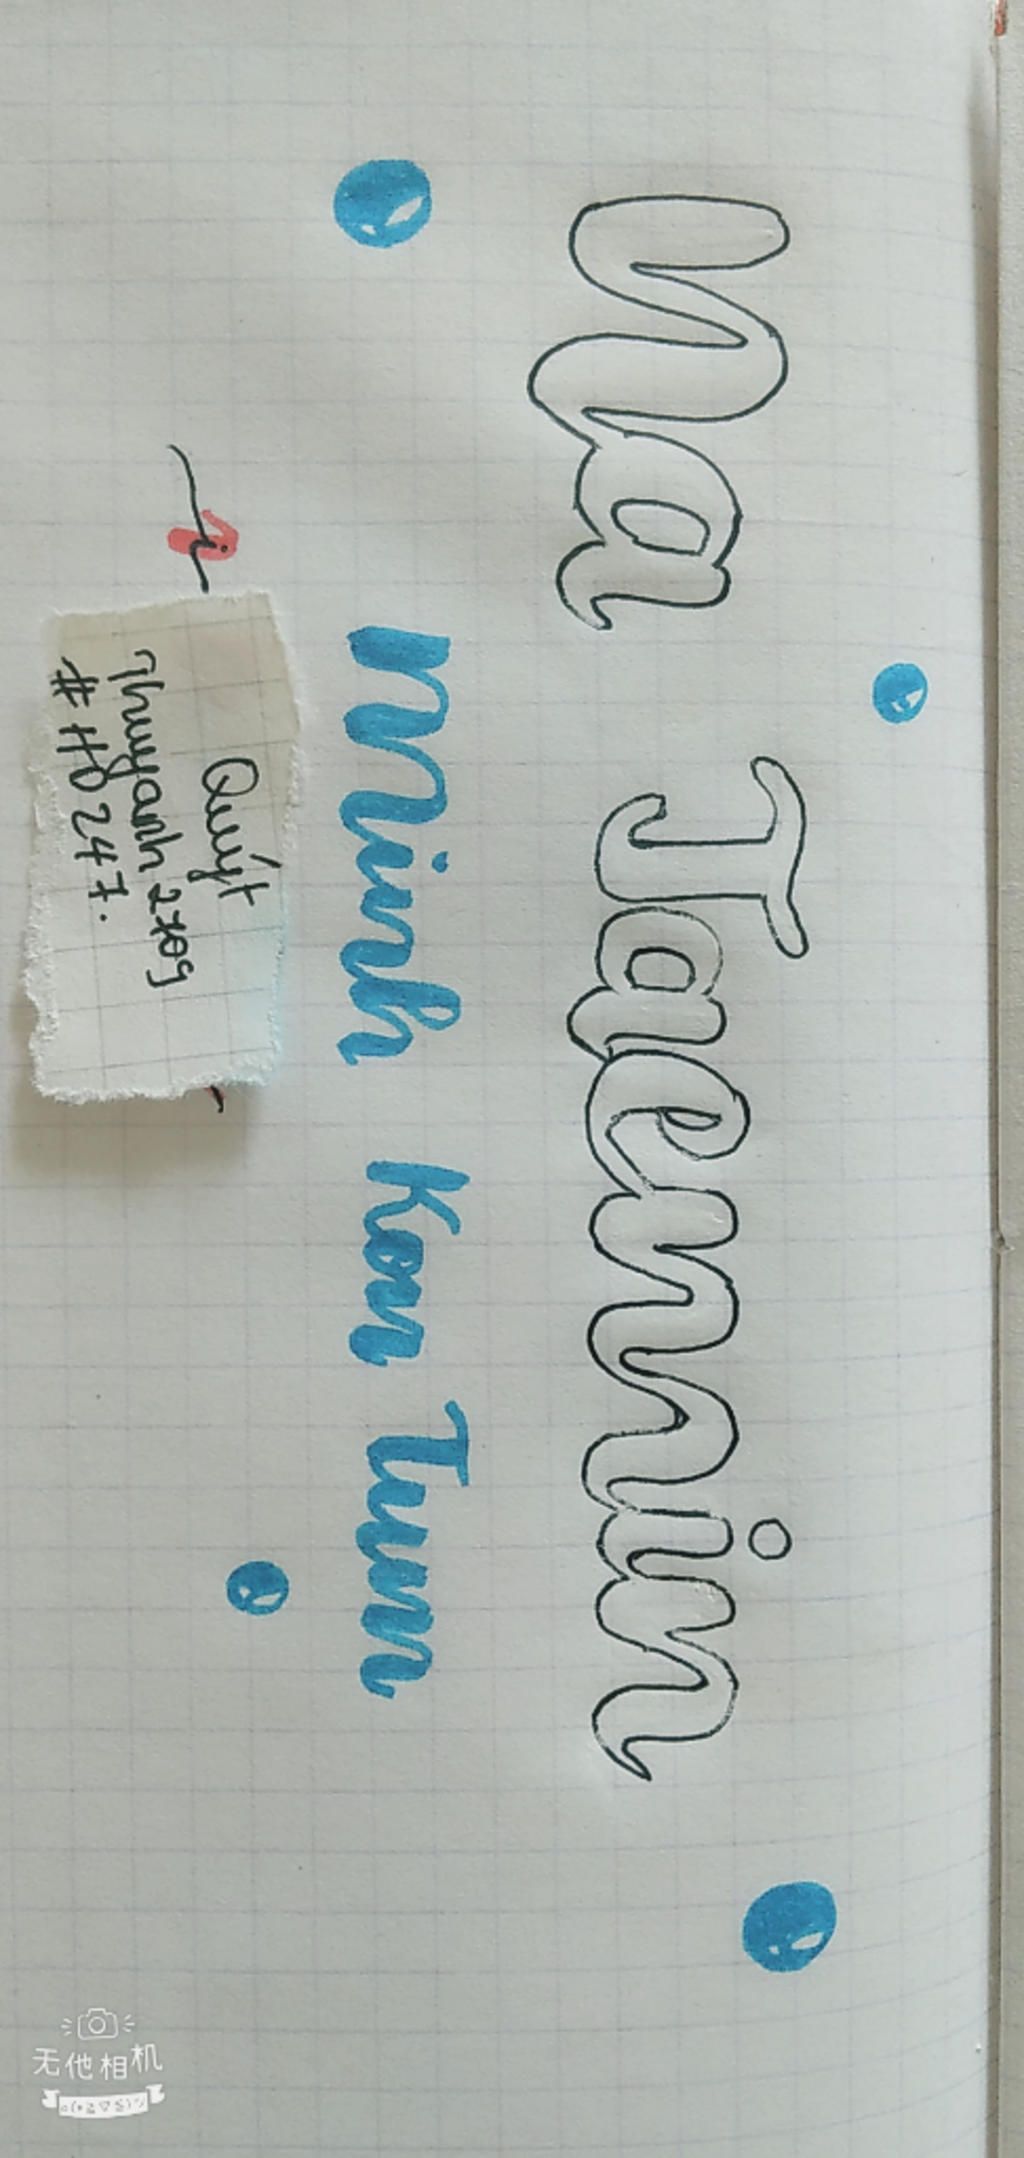 Na Jaemin
Minh Kon Tum
Quýt
Thuyanh2709
#HD247.
无他相机